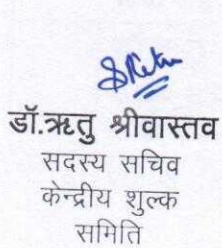 डॉ.ऋतु श्रीवास्तव
सदस्य सचिव
केन्द्रीय शुल्क
समिति